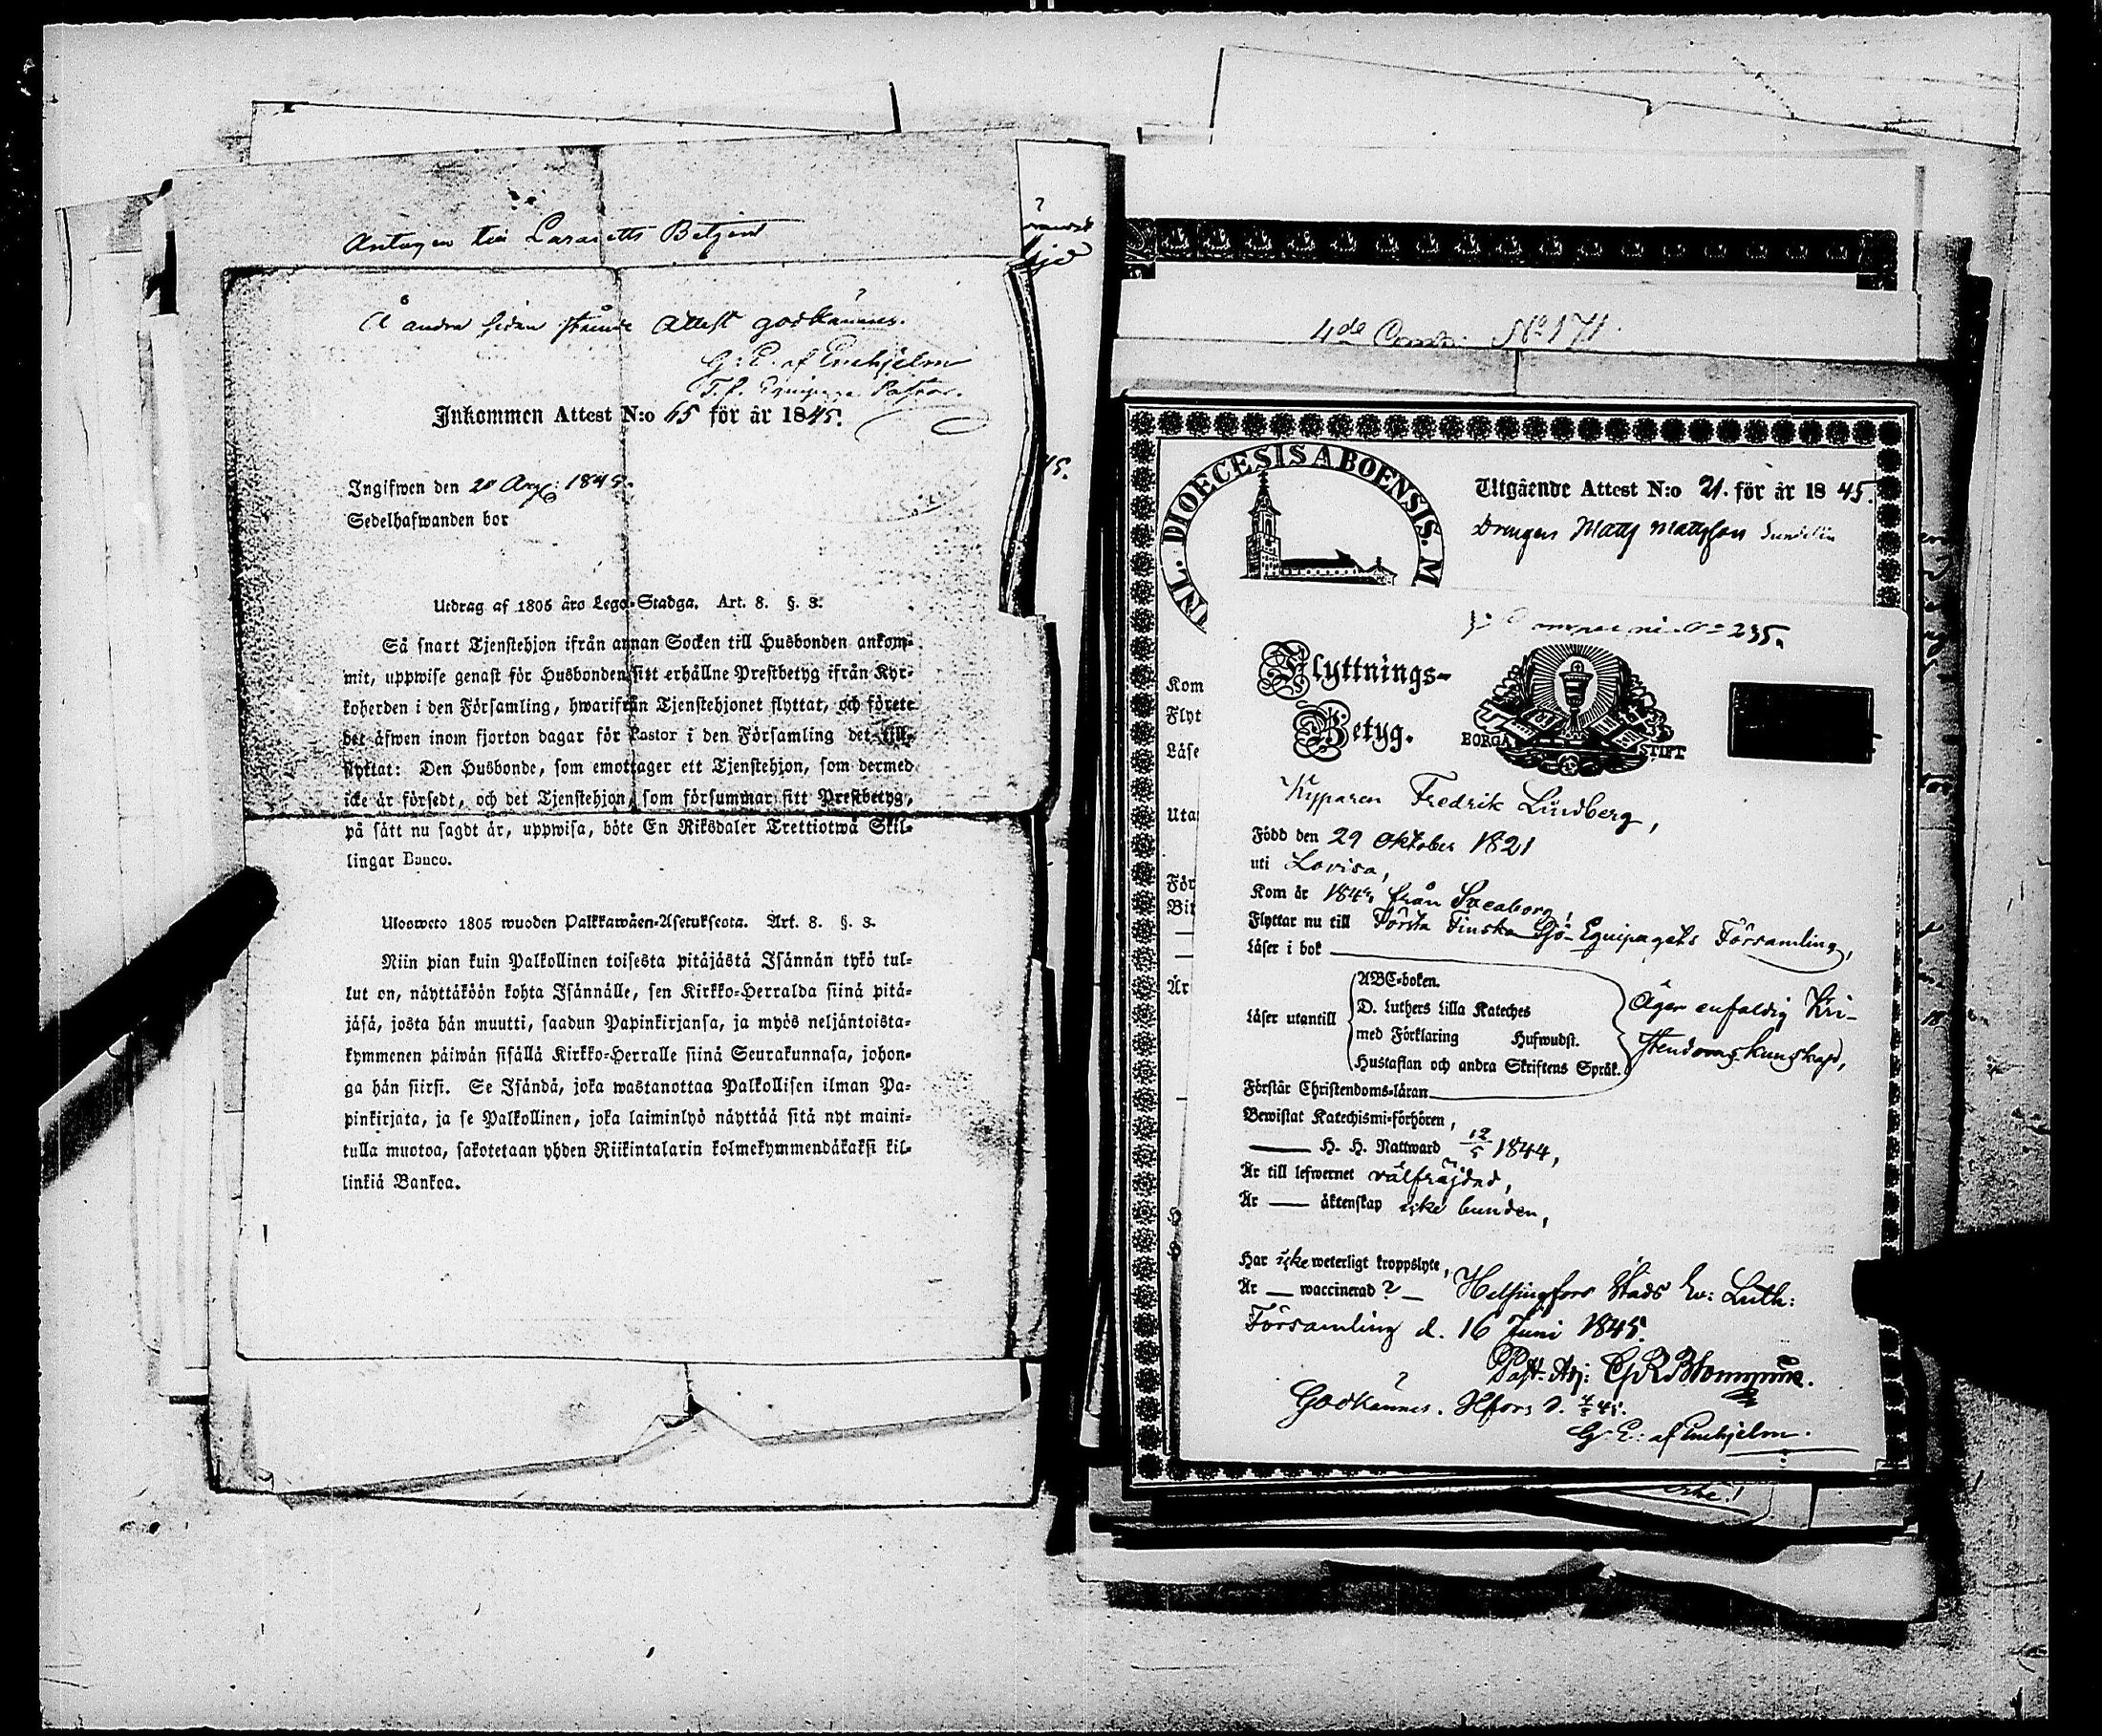 Antagen till Lazaretts Betjent
Å andra sidan stående Attest godkännes.
G: E. af Enehjelm
T. f. Equipage Pastor.
Inkommen Attest N:o 65 för år 1845.
Ingifwen den 20 Aug: 1845.
Sedelhafwanden bor
Utdrag af 1805 års Lego-Stadga. Art. 8. §. 3.
Så snart Tjenstehjon ifrån annan Socken till Husbonden ankom-
mit, uppwise genast för Husbonden sitt erhållne Prestbetyg ifrån Kyr-
koherden i den Församling, hwarifrån Tjenstehjonet flyttat, och förete
det äfwen inom fjorton dagar för Pastor i den Församling det till-
flyttat: Den Husbonde, som emottager ett Tjenstehjon, som dermed
icke är försedt, och det Tjenstehjon, som försummar sitt Prestbetyg,
på sätt nu sagdt är, uppwisa, böte En Riksdaler Trettiotwå Skil-
lingar Banco.
Ulosweto 1805 wuoden Palkkawäen-Asetuksesta. Art. 8. §. 3.
Niin pian kuin Palkollinen toisesta pitäjästä Isännän tykö tul-
lut on, näyttäköön kohta Isännälle, sen Kirkko-Herralda siinä pitä-
jäsä, josta hän muutti, saadun Papinkirjansa, ja myös neljäntoista-
kymmenen päiwän sisällä Kirkko-Herralle siinä Seurakunnasa, johon-
ga hän siirsi. Se Isändä, joka wastanottaa Palkollisen ilman Pa-
pinkirjata, ja se Palkollinen, joka laiminlyö näyttää sitä nyt maini-
tulla muotoa, sakotetaan yhden Riikintalarin kolmekymmendäkaksi kil-
linkiä Bankoa.
4de Comp: No 171.
INL. DIOECESIS ABOENSIS. M
Utgående Attest N:o 21. för år 1845.
Drengen Matts Mattsson Sundelin
235.
Kom
Flyt
Läse
Uta
För
Bit
Är
Flyttnings-
Betyg.
BORGÅ STIFT
Kyparen Fredrik Lindberg,
Född den 29 Oktober 1821
uti Lovisa,
Kom år från Sveaborg,
Flyttar nu till Första Finska Sjö-Equipagets Församling,
Läser i bok
Läser utantill
ABC-boken.
D. Luthers Lilla Kateches
med Förklaring Hufwudst.
Hustaflan och andra Skriftens Språk.
Äger enfaldig Kri-
stendomskunskap,
Förstår Christendoms-läran
Bewistat Katechismi-förhören,
— H. H. Nattward 12/5 1844,
Är till lefwernet välfräjdad,
Är — äktenskap icke bunden,
Har icke weterligt kroppslyte,
Är — waccinerad? — Helsingfors Stads Ev: Luth:
Församling d. 16 Juni 1845.
Past. Adj:
Godkännes. Hfors d. 45.
G. E: af Enehjelm.